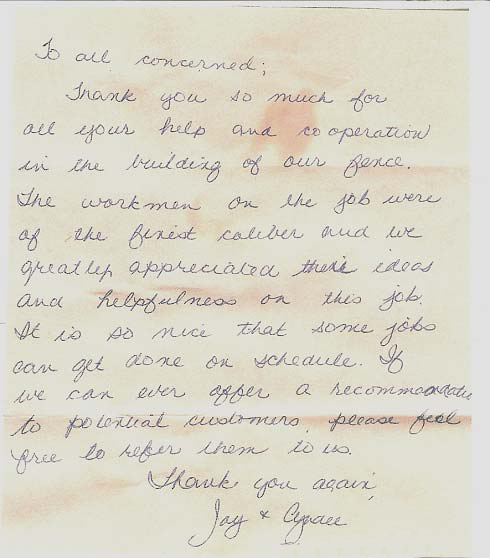 To all concerned;
Thank you so much for
all your help and cooperation
in the building of our fence.
The workmen on the job were
of the finest caliber and we
greatly appreciated their ideas
and helpfulness on this job.
It is so nice that some jobs
can get done on schedule. If
we can ever offer a recommendation
to potential customers, please feel
free to refer them to us.
Thank you again,
Jay &